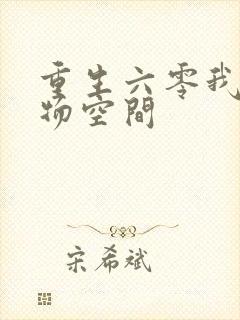 重生六零我
物空間
宋希斌